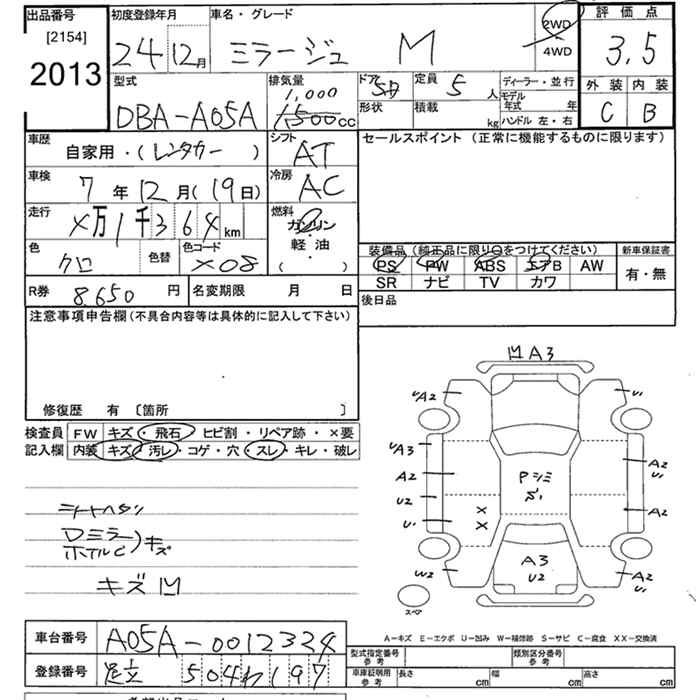 出品番号 初度登録年月 車名・グレード 2WD 評価点
[2154] 24 12月 ミラージュ M 4WD 3.5
2013
型式 排気量 ドア 定員 ディーラー・並行 外装 内装
DBA-A05A 1,000 5D 5人 モデル年式 年 C B
1500cc 形状 積載 kg ハンドル 左・右
車歴 シフト セールスポイント (正常に機能するものに限ります)
自家用・(レンタカー) AT
車検 冷房
7年12月(19日) AC
走行 燃料
X万1千364km ガソリン
色 色替 色コード 軽油 装備品 (純正品に限り○をつけてください) 新車保証書
クロ X08 ( ) PS PW ABS エアB AW 有・無
R券 8,650円 名変期限 月 日 SR ナビ TV カワ
後日品
注意事項申告欄(不具合内容等は具体的に記入して下さい)
修復歴 有 〔箇所 〕
検査員 FW キズ・飛石・ヒビ割・リペア跡・×要
記入欄 内装 キズ・汚レ・コゲ・穴・スレ・キレ・破レ
シートヘタリ
Dミラー
ホイルC
キズ
キズ
A3
A2 U1
UA3
A2 A2
U1
U2 Pシミ
U1 X A2
X
W2 A3 A2
U2 U1
スペア
A-キズ E-エクボ U-凹み W-補修跡 S-サビ C-腐食 XX-交換済
車台番号 A05A-0012324
型式指定番号 参考 類別区分番号 参考
登録番号 足立 504わ197
車庫証明用 参考 長さ cm 幅 cm 高さ cm